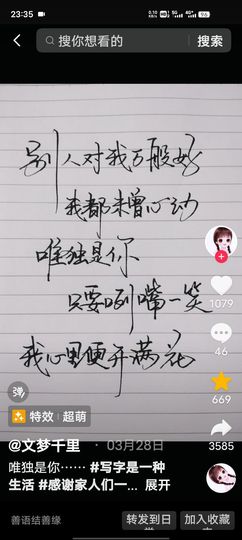 23:35
搜你想看的
搜索
别人对我万般好
我都未曾心动
唯独是你
只要咧嘴一笑
我心里便开满花
1079
46
669
3585
弹
特效 | 超萌
@文梦千里 · 03月28日
唯独是你…… #写字是一种
生活 #感谢家人们一... 展开
善语结善缘
转发到日常
加入收藏